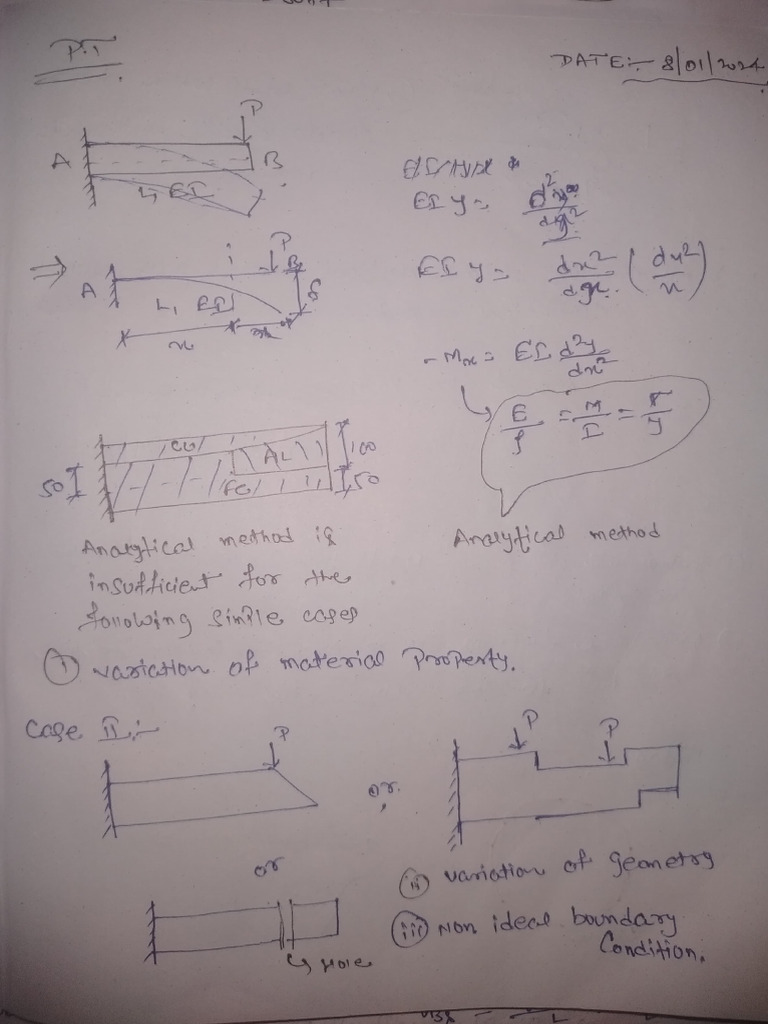 P.T
DATE:- 8/01/2024
P
A
B
L, EI
EI y =
⇒
P
A
B
δ
L, EI
x
EI y = dx²/dyx. (dy²/x)
- Mx = EI d²y/dx²
E/ρ = M/I = σ/y
CU
AL
100
50
FE
50
Analytical method is
insufficient for the
following simple cases
Analytical method
(i) variation of material Property.
Case II :-
P
or
P
P
or
(ii) variation of geometry
(iii) Non ideal boundary
Condition.
Hole